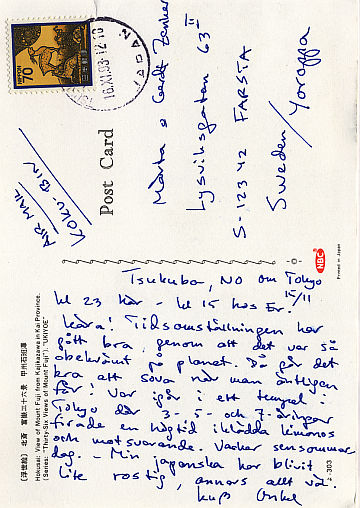 70
16.XI.83-12 18
JAPAN
AIR MAIL
KOKU-BIN
Post Card
Märta o Gerdt Zenker
Lysviksgatan 63 II
S-123 42 FARSTA
Sweden/Yoroppa
NBC
Printed in Japan
Tsukuba, NO om Tokyo
kl 23 här - kl 15 hos Er. 15/11
Kära! Tidsomställningen har
gått bra, genom att det var så
obekvämt på planet. Då går det
bra att sova när man äntligen
får! Var igår i ett tempel i
Tokyo där 3-, 5- och 7-åringar
firade en högtid iklädda kimonos
och motsvarande. Vacker sensommar
dag. - Min japanska har blivit
lite rostig, annars allt väl.
Kuß Onkel
(浮世絵) 北斎 富嶽三十六景 甲州石班澤
Hokusai: View of Mount Fuji from Kajikazawa in Kai Province.
(Series: "Thirty-Six Views of Mount Fuji"). "UKIYOE"
-303